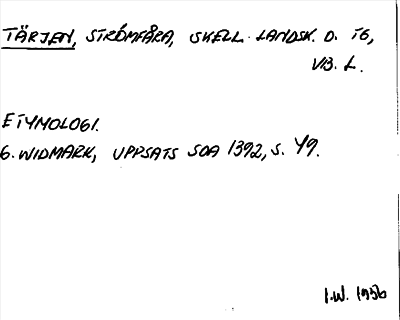 TÄRJEN, STRÖMFÅRA, SKELL. LANDSK. D. T6,
VB. L.
ETYMOLOGI.
G. WIDMARK, UPPSATS SOA 1392, S. 49.
I.W. 1956